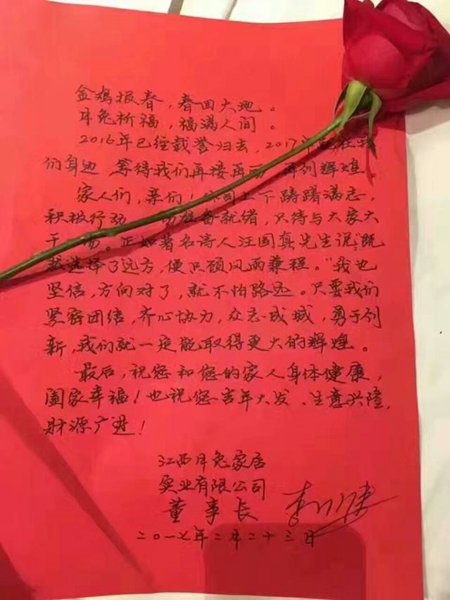 金鸡报春，春回大地。
月兔祈福，福满人间。
2016年已经载誉归去，2017年
们身边，等待我们再接再厉，再创辉煌
家人们，亲们！公司上下踌躇满志，
积极行动 准备就绪，只待与大家大
干一场。正如著名诗人汪国真先生说“既
然选择了远方，便只顾风雨兼程。”我也
坚信，方向对了，就不怕路远。只要我们
紧密团结，齐心协力，众志成城，勇于创
新，我们就一定能取得更大的辉煌。
最后，祝您和您的家人身体健康，
阖家幸福！也祝您吉年大发、生意兴隆，
财源广进！
江西月兔家居
实业有限公司
董事长
二〇一七年二月二十三日